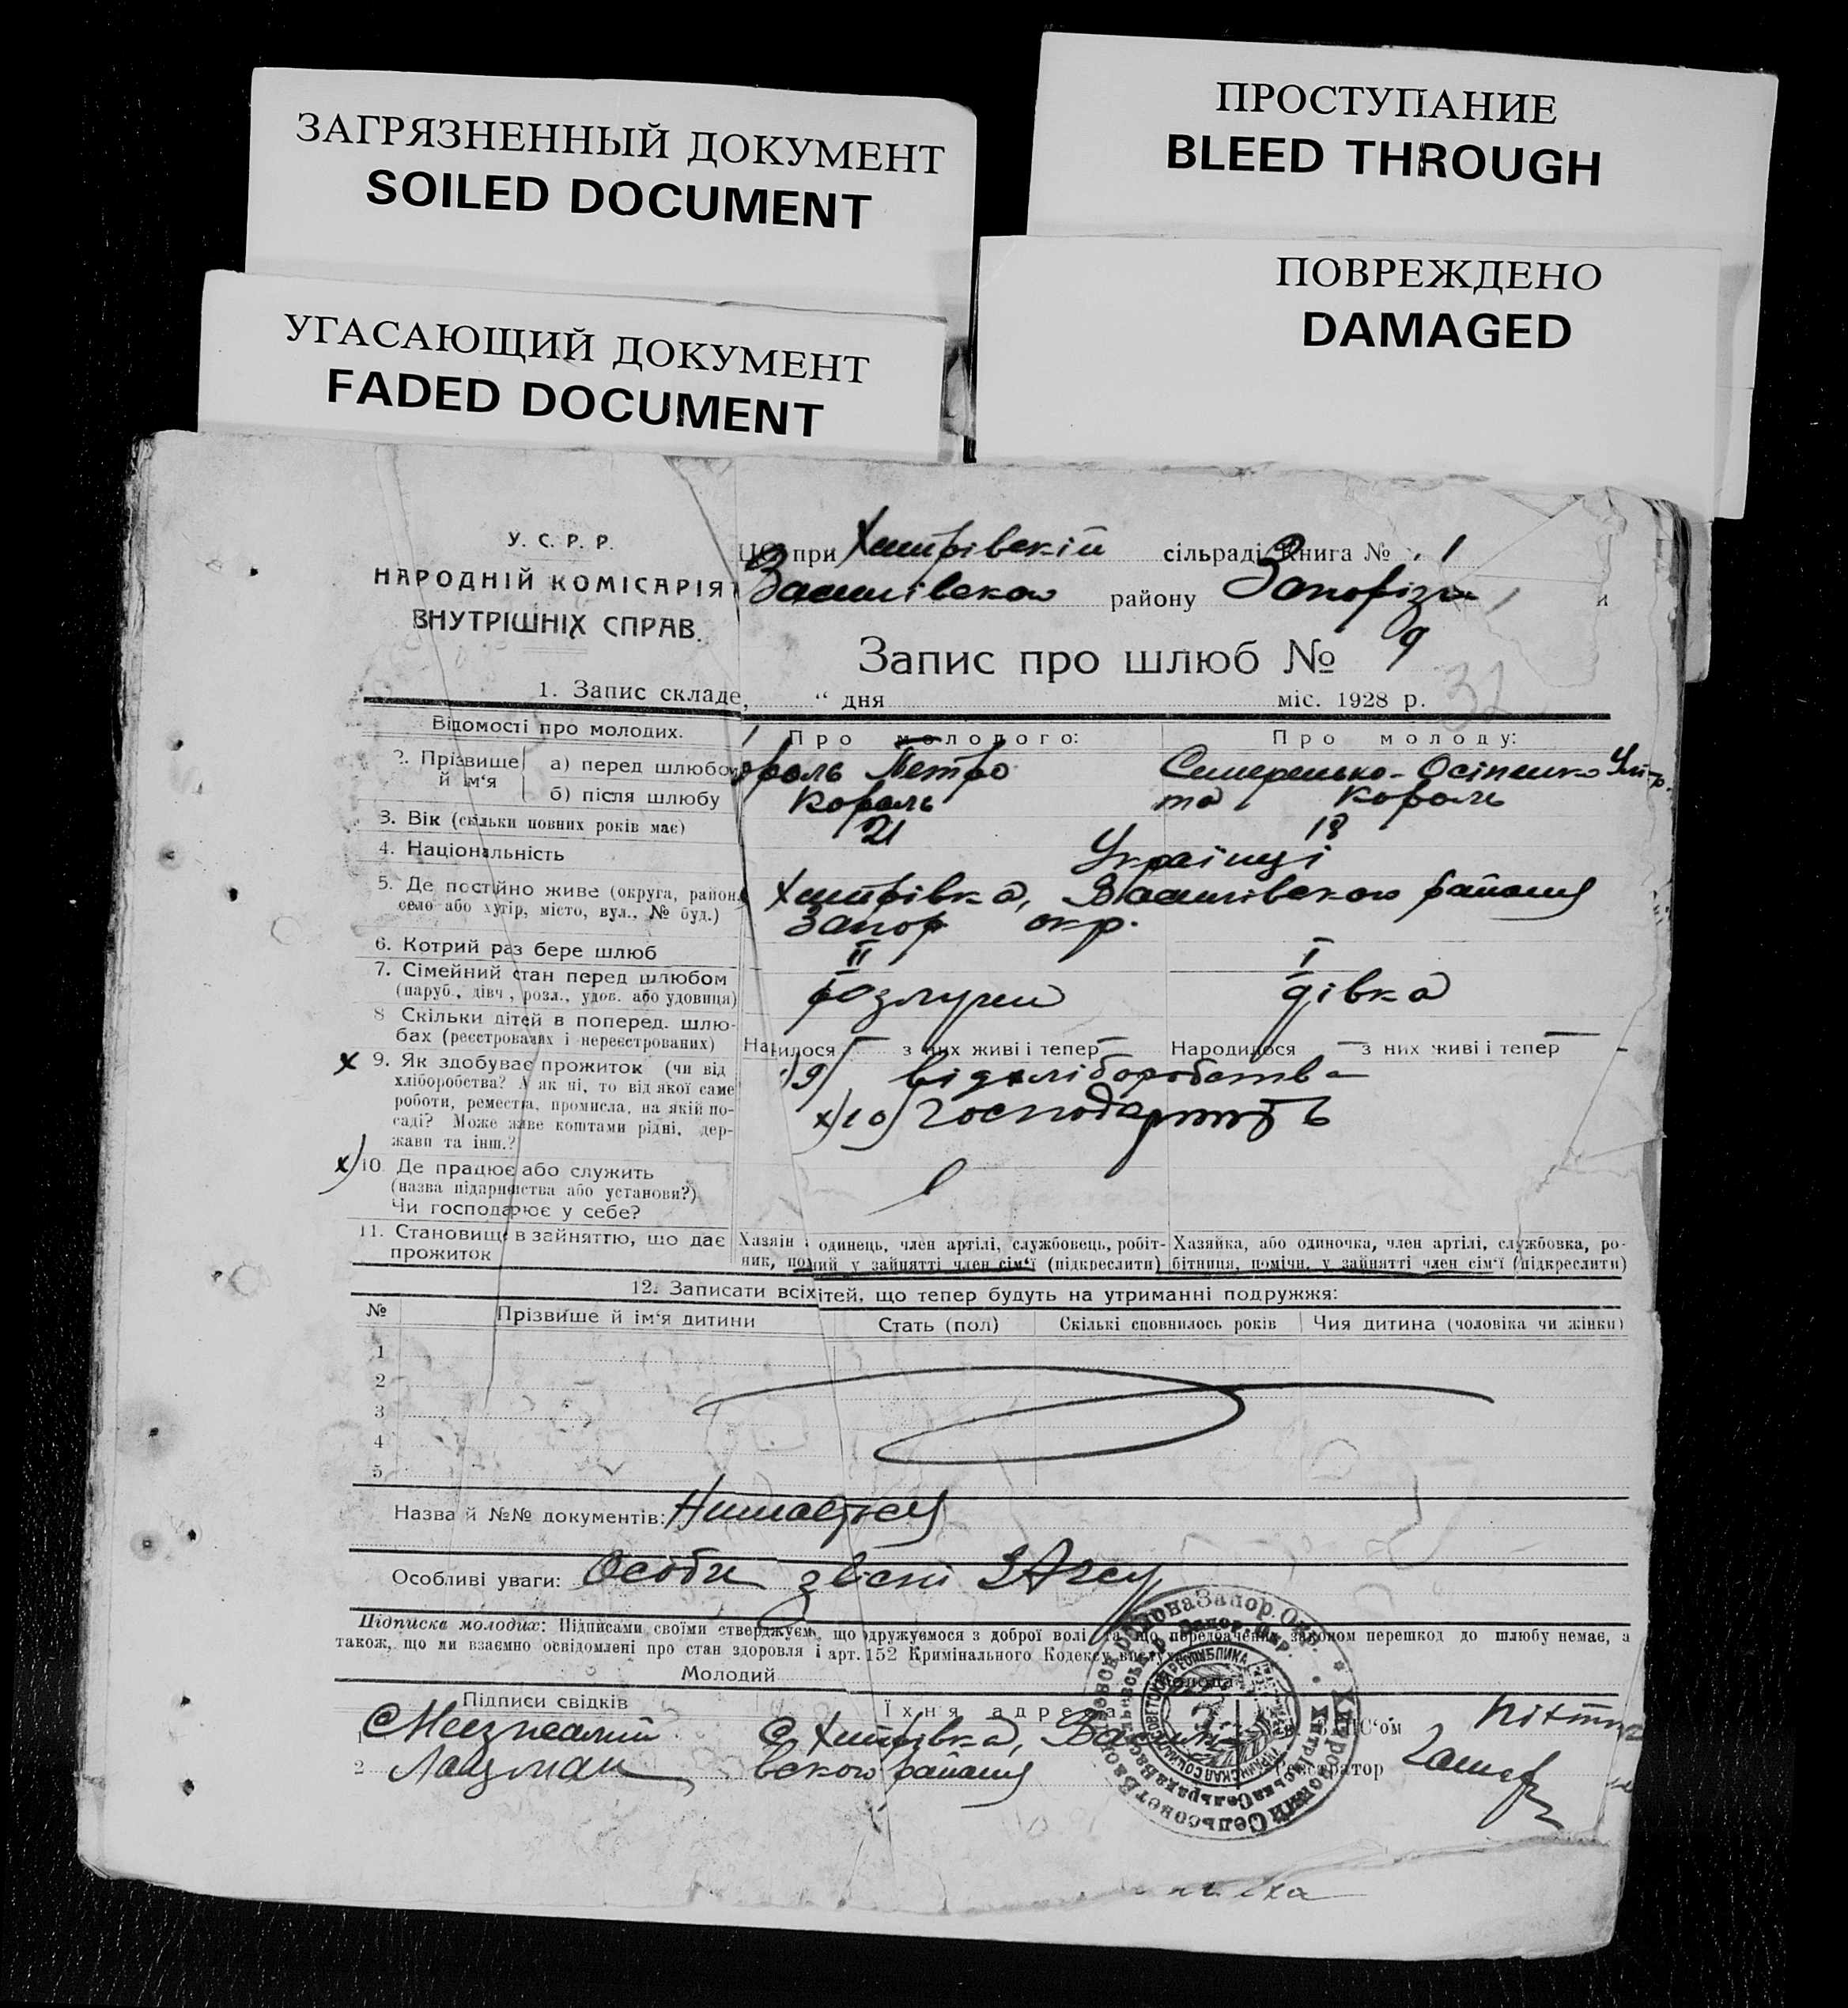 ЗАГРЯЗНЕННЫЙ ДОКУМЕНТ
SOILED DOCUMENT
ПРОСТУПАНИЕ
BLEED THROUGH
УГАСАЮЩИЙ ДОКУМЕНТ
FADED DOCUMENT
ПОВРЕЖДЕНО
DAMAGED
У. С. Р. Р.
НАРОДНІЙ КОМІСАРІЯ
ВНУТРІШНІХ СПРАВ.
при Хитрівській сільраді Книга № 1
району Запоріз
Запис про шлюб № 9
32
1. Запис складе, “ дня міс. 1928 р.
Відомості про молодих. Про молодого: Про молоду:
2. Прізвище й ім‘я а) перед шлюбо ороль Петро Семеренько-Осіпенко
б) після шлюбу Король та Король
3. Вік (скільки повних років має) 21 18
4. Національність Українці
5. Де постійно живе (округа, район, село або хутір, місто, вул., № буд.) Хитрівка, Василівского району
Запор окр.
6. Котрий раз бере шлюб II I
7. Сімейний стан перед шлюбом
(паруб., дівч., розл., удов. або удовиця) розлучен дівка
8 Скільки дітей в поперед. шлю-
бах (реєстрованих і нереєстрованих) На илося з них живі і тепер Народилося з них живі і тепер
х 9. Як здобуває прожиток (чи від 9) від хліборобства
хліборобства? А як ні, то від якої саме
роботи, реместа, промисла, на якій по- х) 10)
саді? Може живе коштами рідні, дер-
жави та інш.?
х) 10 Де працює або служить
(назва підприємства або установи?)
Чи господарює у себе?
11. Становище в зайняттю, що дає прожиток
Хазяін одинець, член артілі, службовець, робіт-
ник, по ий у зайнятті член сім‘ї (підкреслити)
Хазяйка, або одиночка, член артілі, службовка, ро-
бітниця, помічн. у зайнятті член сім‘ї (підкреслити)
12. Записати всіх ітей, що тепер будуть на утриманні подружжя:
№ Прізвище й ім‘я дитини Стать (пол) Скількі сповнилось років Чия дитина (чоловіка чи жінки)
1
2
3
4
5
Назва й №№ документів:
Особливі уваги: Особи звісні ЗАГсу
Підписка молодих: Підписами своїми стверджуєм, що дружуємося з доброї волі, та що передбачених законом перешкод до шлюбу немає, а
також, що ми взаємно освідомлені про стан здоровля і арт. 152 Кримінального Кодексу
Молодий
Підписи свідків Їхня адреса
1 С Хитрівка, Васил
2 Лацман вского району
Реєстратор